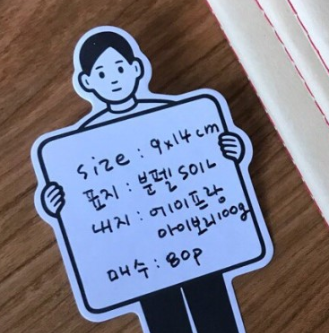 size : 9x14 cm
표지 : 분펠 SOIL
내지 : 에이프랑
아이보리100g
매수 : 80p